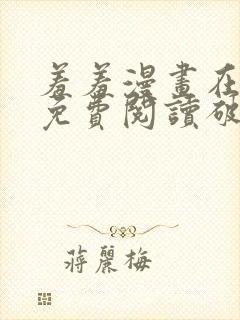 羞羞漫畫在
免費閱讀破
蔣麗梅